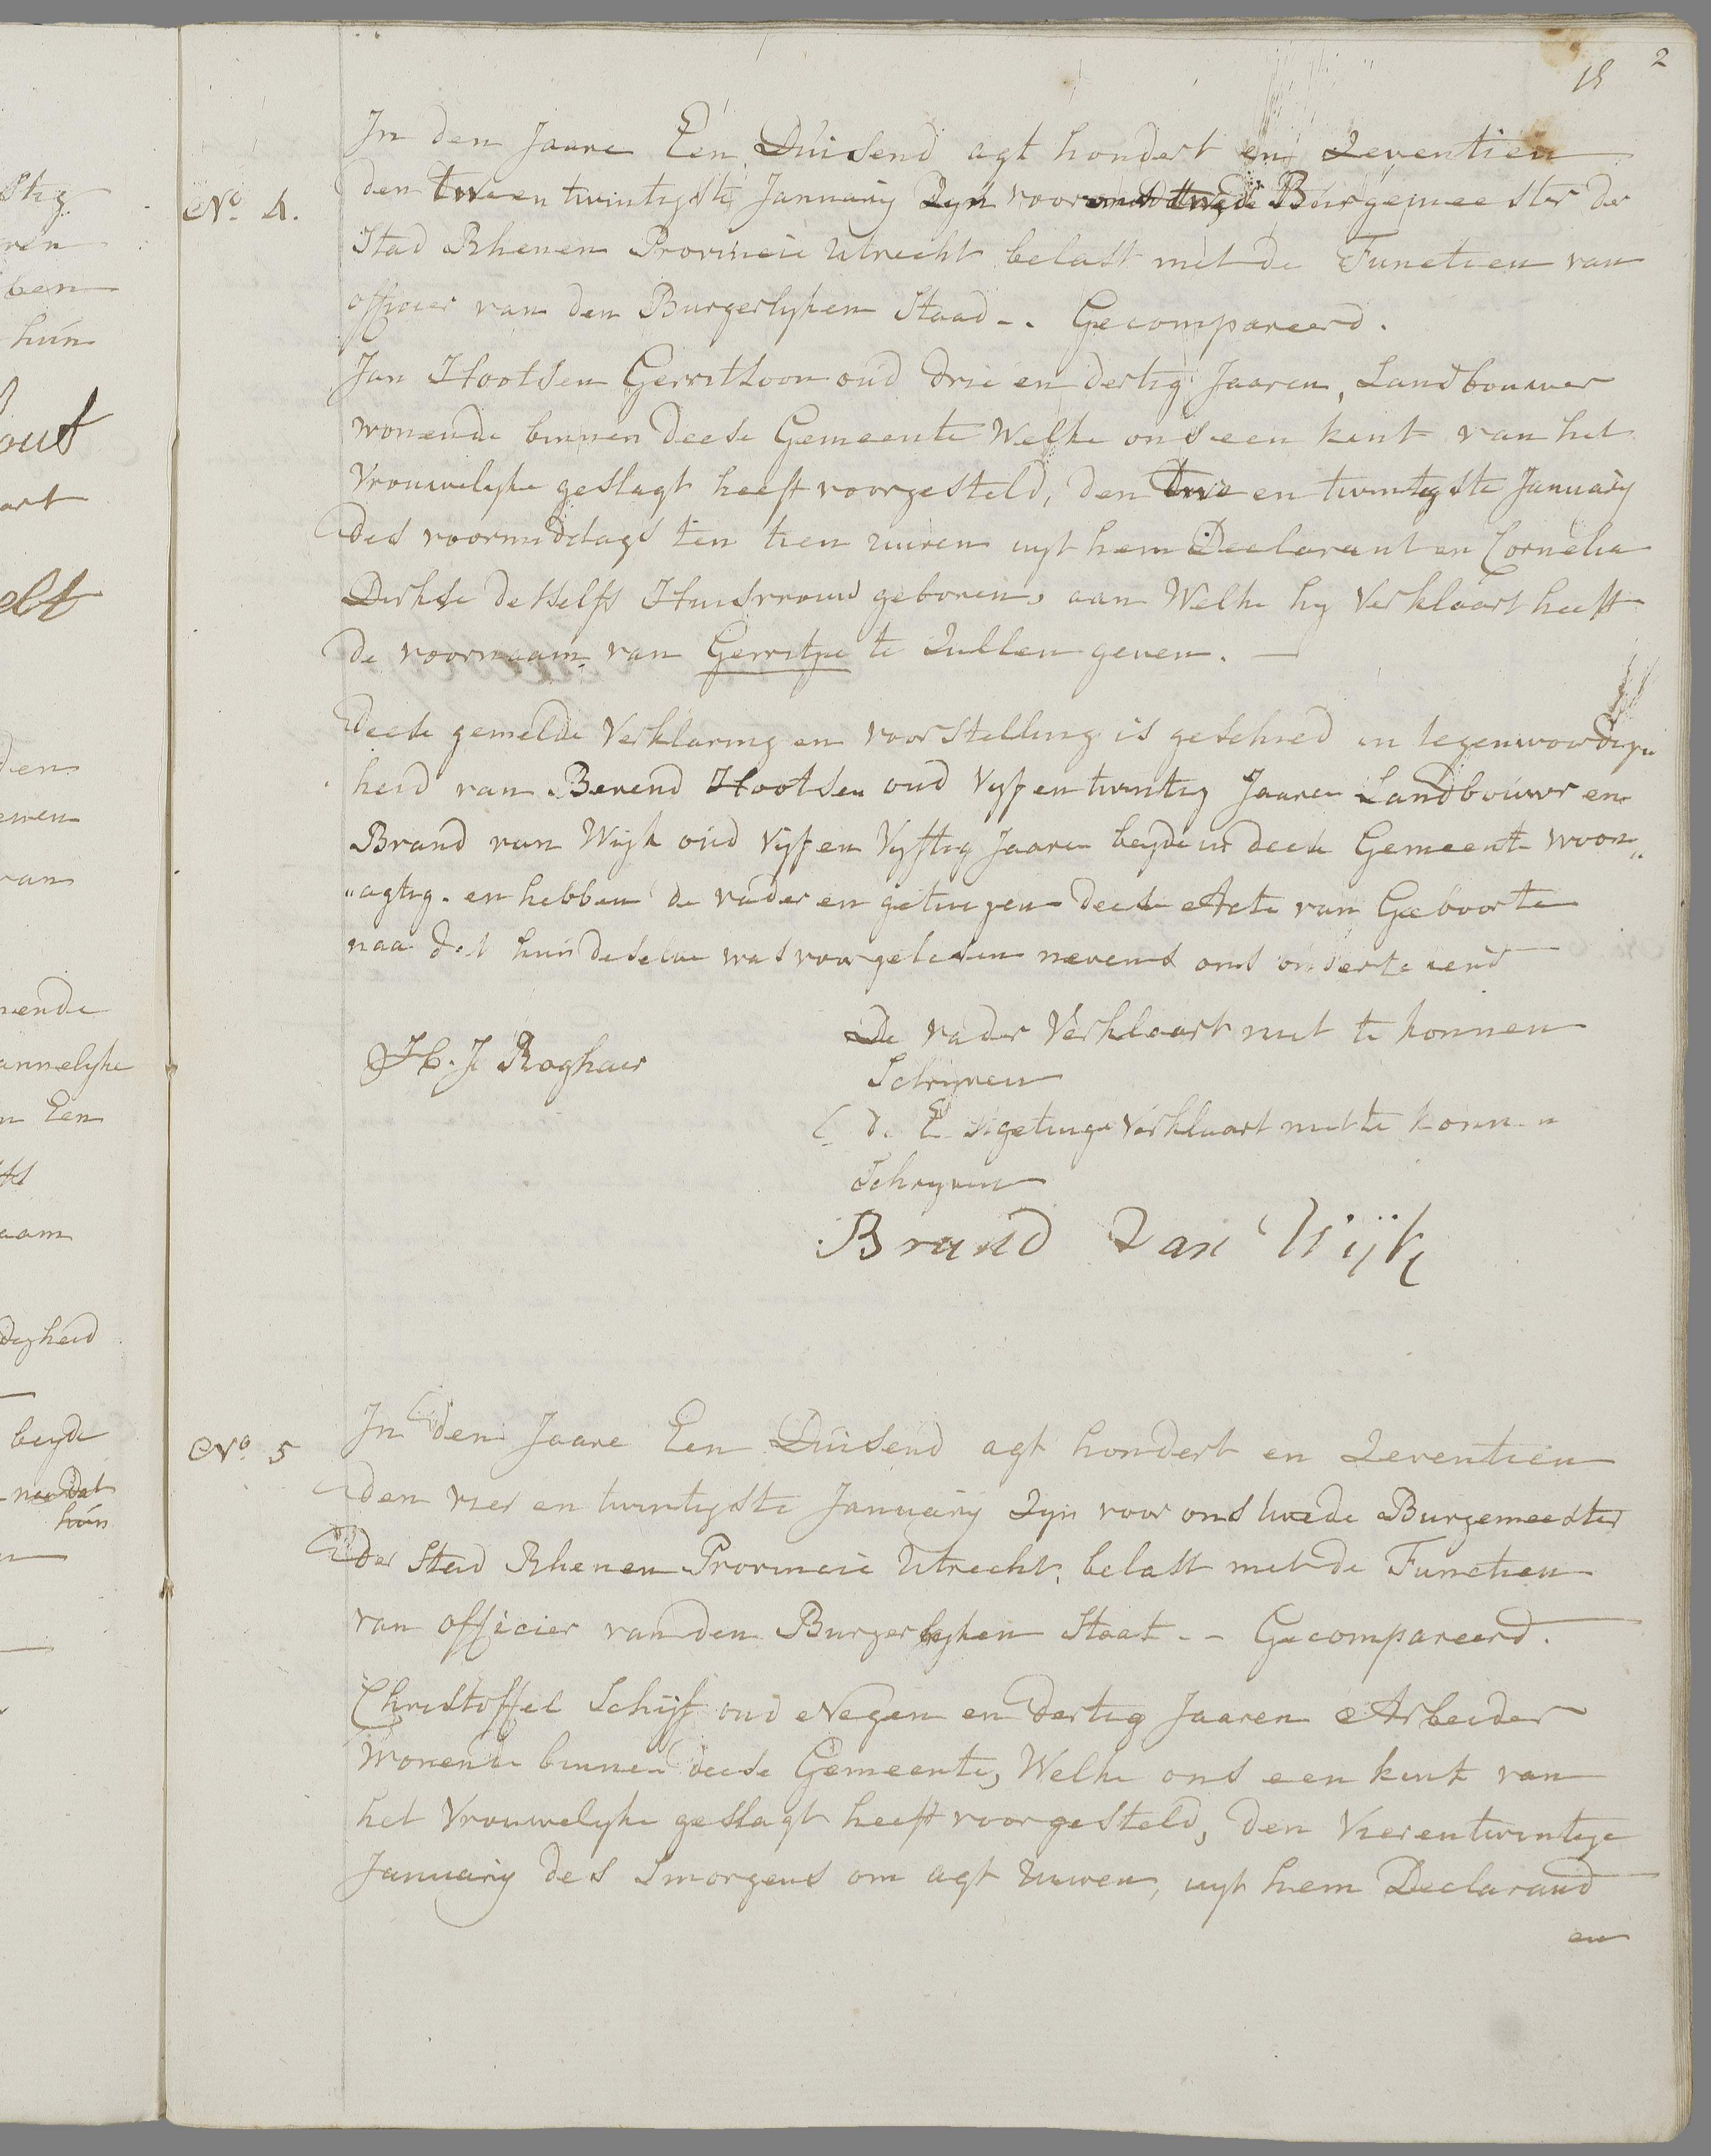 2
18
No. 4.
In den Jaare Een Duisend agt hondert en Zeventien
den tween twintigste January Zyn voor ons twede Burgemeester der
Stad Rhenen Provincie Utrecht belast met de Functien van
officier van den Burgerlyken Staad -. Gecompareerd.
Jan Hootsen Gerritsoon oud drie en dertig Jaaren, Landbouwer
wonende binnen deese Gemeente Welke ons een kint van het
Vrouwelyke geslagt heeft voorgesteld, den twe en twintigste January
des voormiddags ten tien uuren uyt hem Declarant en Cornelia
Dirkse desselfs Huisvrouw geboren, aan Welke hy Verklaart heeft
de voornaam van Gerritje te Zullen geven. —
deese gemelde Verklaring en voorstelling is geschied in tegenwoordige
heid van Berend Hootsen oud Vyf en twintig Jaaren Landbouwer en
Brand van Wijk oud Vijf en Vyftig Jaaren beyde in deese Gemeente woon„
„agtig. en hebben de vader en getuigen deese Acte van Geboorte
naa dat hun deselve was voorgelesen nevens ons onderteekend
De vader Verklaart niet te konnen
Schryven
H. J. Roghair
de E getuige Verklaart niet te konnen
Schryven
Brand Van Wijk
No. 5
In den Jaare Een Duisend agt hondert en Zeventien
den vier en twintigste January Zyn voor ons twede Burgemeester
der Stad Rhenen Provincie Utrecht, belast met de Functien
van officier van den Burgerlyken Staat -- Gecompareerd.
Christoffel Schijf oud Negen en dertig Jaaren Arbeider
Wonende binnen deese Gemeente, Welke ons een kint van
het Vrouwelyke geslagt heeft voorgesteld, den Vierentwintige
January des Smorgens om agt Uuren, uyt hem Declarand
en